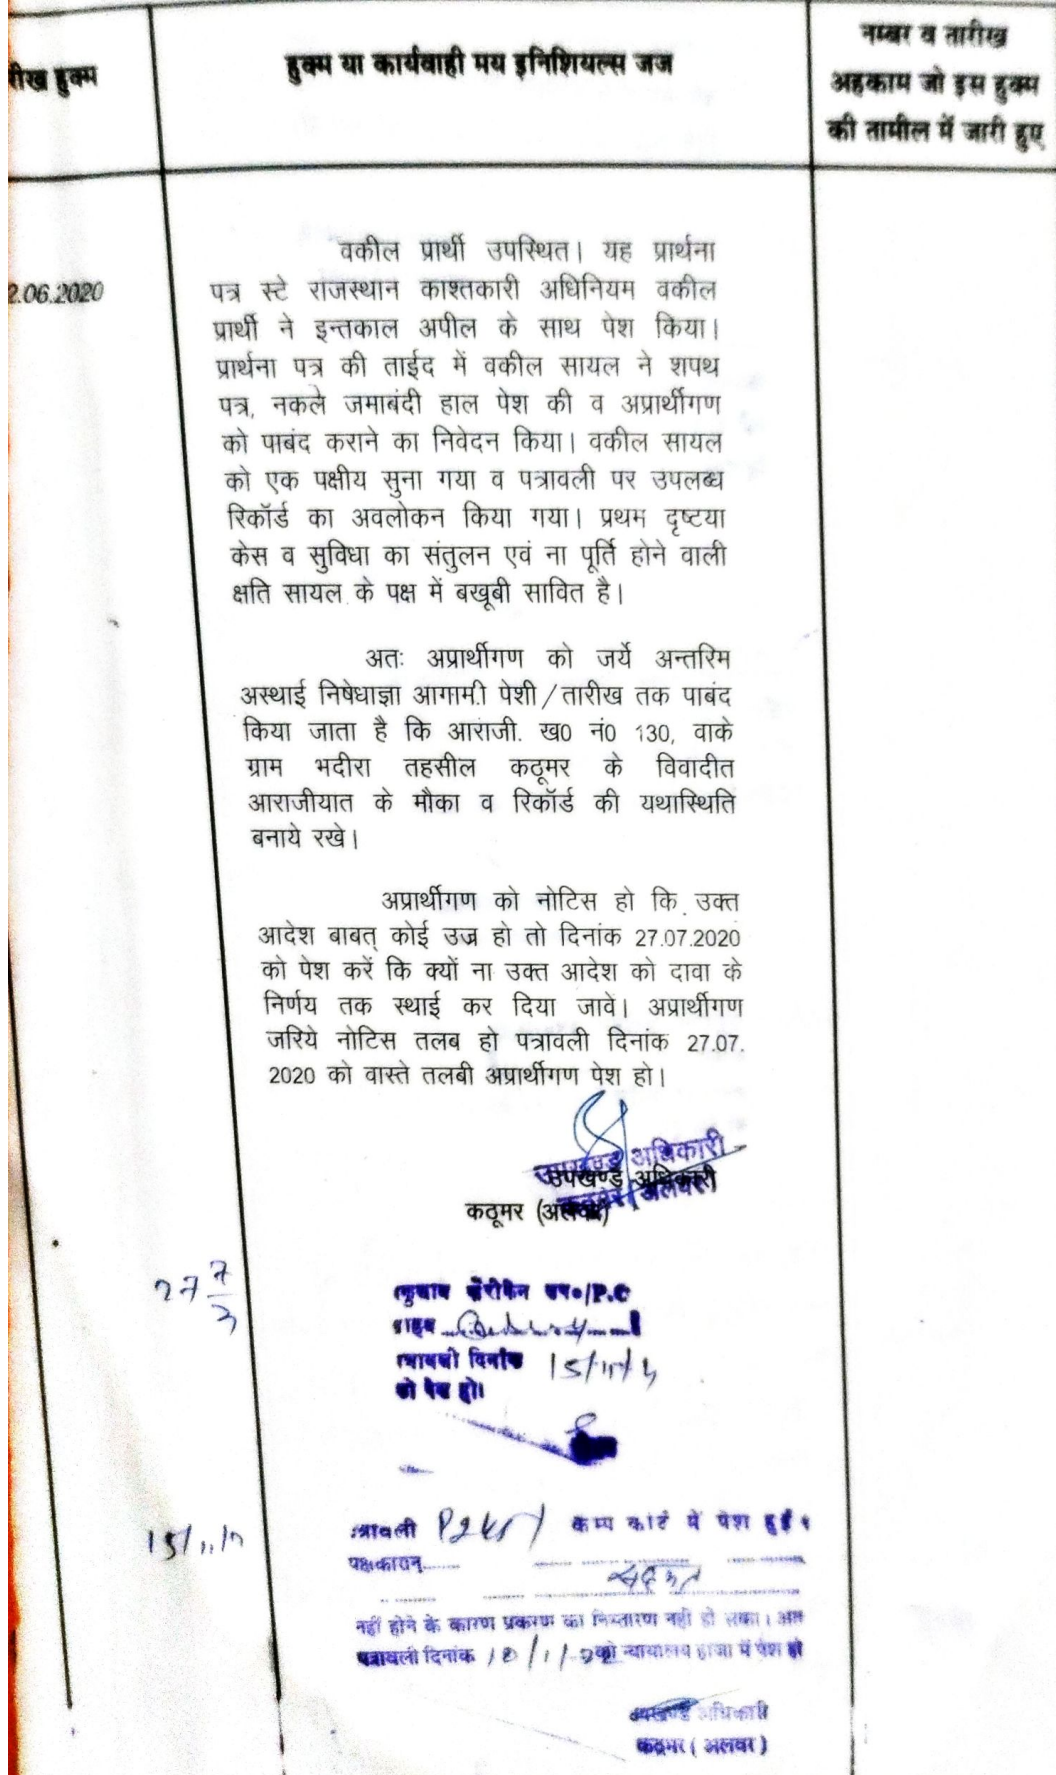 रीख हुक्म
हुक्म या कार्यवाही मय इनिशियल्स जज
नम्बर व तारीख
अहकाम जो इस हुक्म
की तामील में जारी हुए
2.06.2020
वकील प्रार्थी उपस्थित। यह प्रार्थना
पत्र स्टे राजस्थान काश्तकारी अधिनियम वकील
प्रार्थी ने इन्तकाल अपील के साथ पेश किया।
प्रार्थना पत्र की ताईद में वकील सायल ने शपथ
पत्र, नकले जमाबंदी हाल पेश की व अप्रार्थीगण
को पाबंद कराने का निवेदन किया। वकील सायल
को एक पक्षीय सुना गया व पत्रावली पर उपलब्ध
रिकॉर्ड का अवलोकन किया गया। प्रथम दृष्टया
केस व सुविधा का संतुलन एवं ना पूर्ति होने वाली
क्षति सायल के पक्ष में बखूबी सावित है।
अतः अप्रार्थीगण को जर्ये अन्तरिम
अस्थाई निषेधाज्ञा आगामी पेशी/तारीख तक पाबंद
किया जाता है कि आराजी. ख0 नं0 130, वाके
ग्राम भदीरा तहसील कठूमर के विवादीत
आराजीयात के मौका व रिकॉर्ड की यथास्थिति
बनाये रखे।
अप्रार्थीगण को नोटिस हो कि. उक्त
आदेश बाबत् कोई उज्र हो तो दिनांक 27.07.2020
को पेश करें कि क्यों ना उक्त आदेश को दावा के
निर्णय तक स्थाई कर दिया जावें। अप्रार्थीगण
जरिये नोटिस तलब हो पत्रावली दिनांक 27.07.
2020 को वास्ते तलबी अप्रार्थीगण पेश हो।
उपखण्ड अधिकारी
कठूमर (अलवर)
उपखण्ड अधिकारी
कठूमर (अलवर)
27 7
P.C
दिनांक 15/11/
को पेश हो।
15/11/
पत्रावली कैम्प कोर्ट में पेश हुई।
पक्षकारान्
नहीं होने के कारण प्रकरण का निस्तारण नही हो सका। अत
पत्रावली दिनांक को न्यायालय हाजा में पेश हो
उपखण्ड अधिकारी
कठूमर (अलवर)